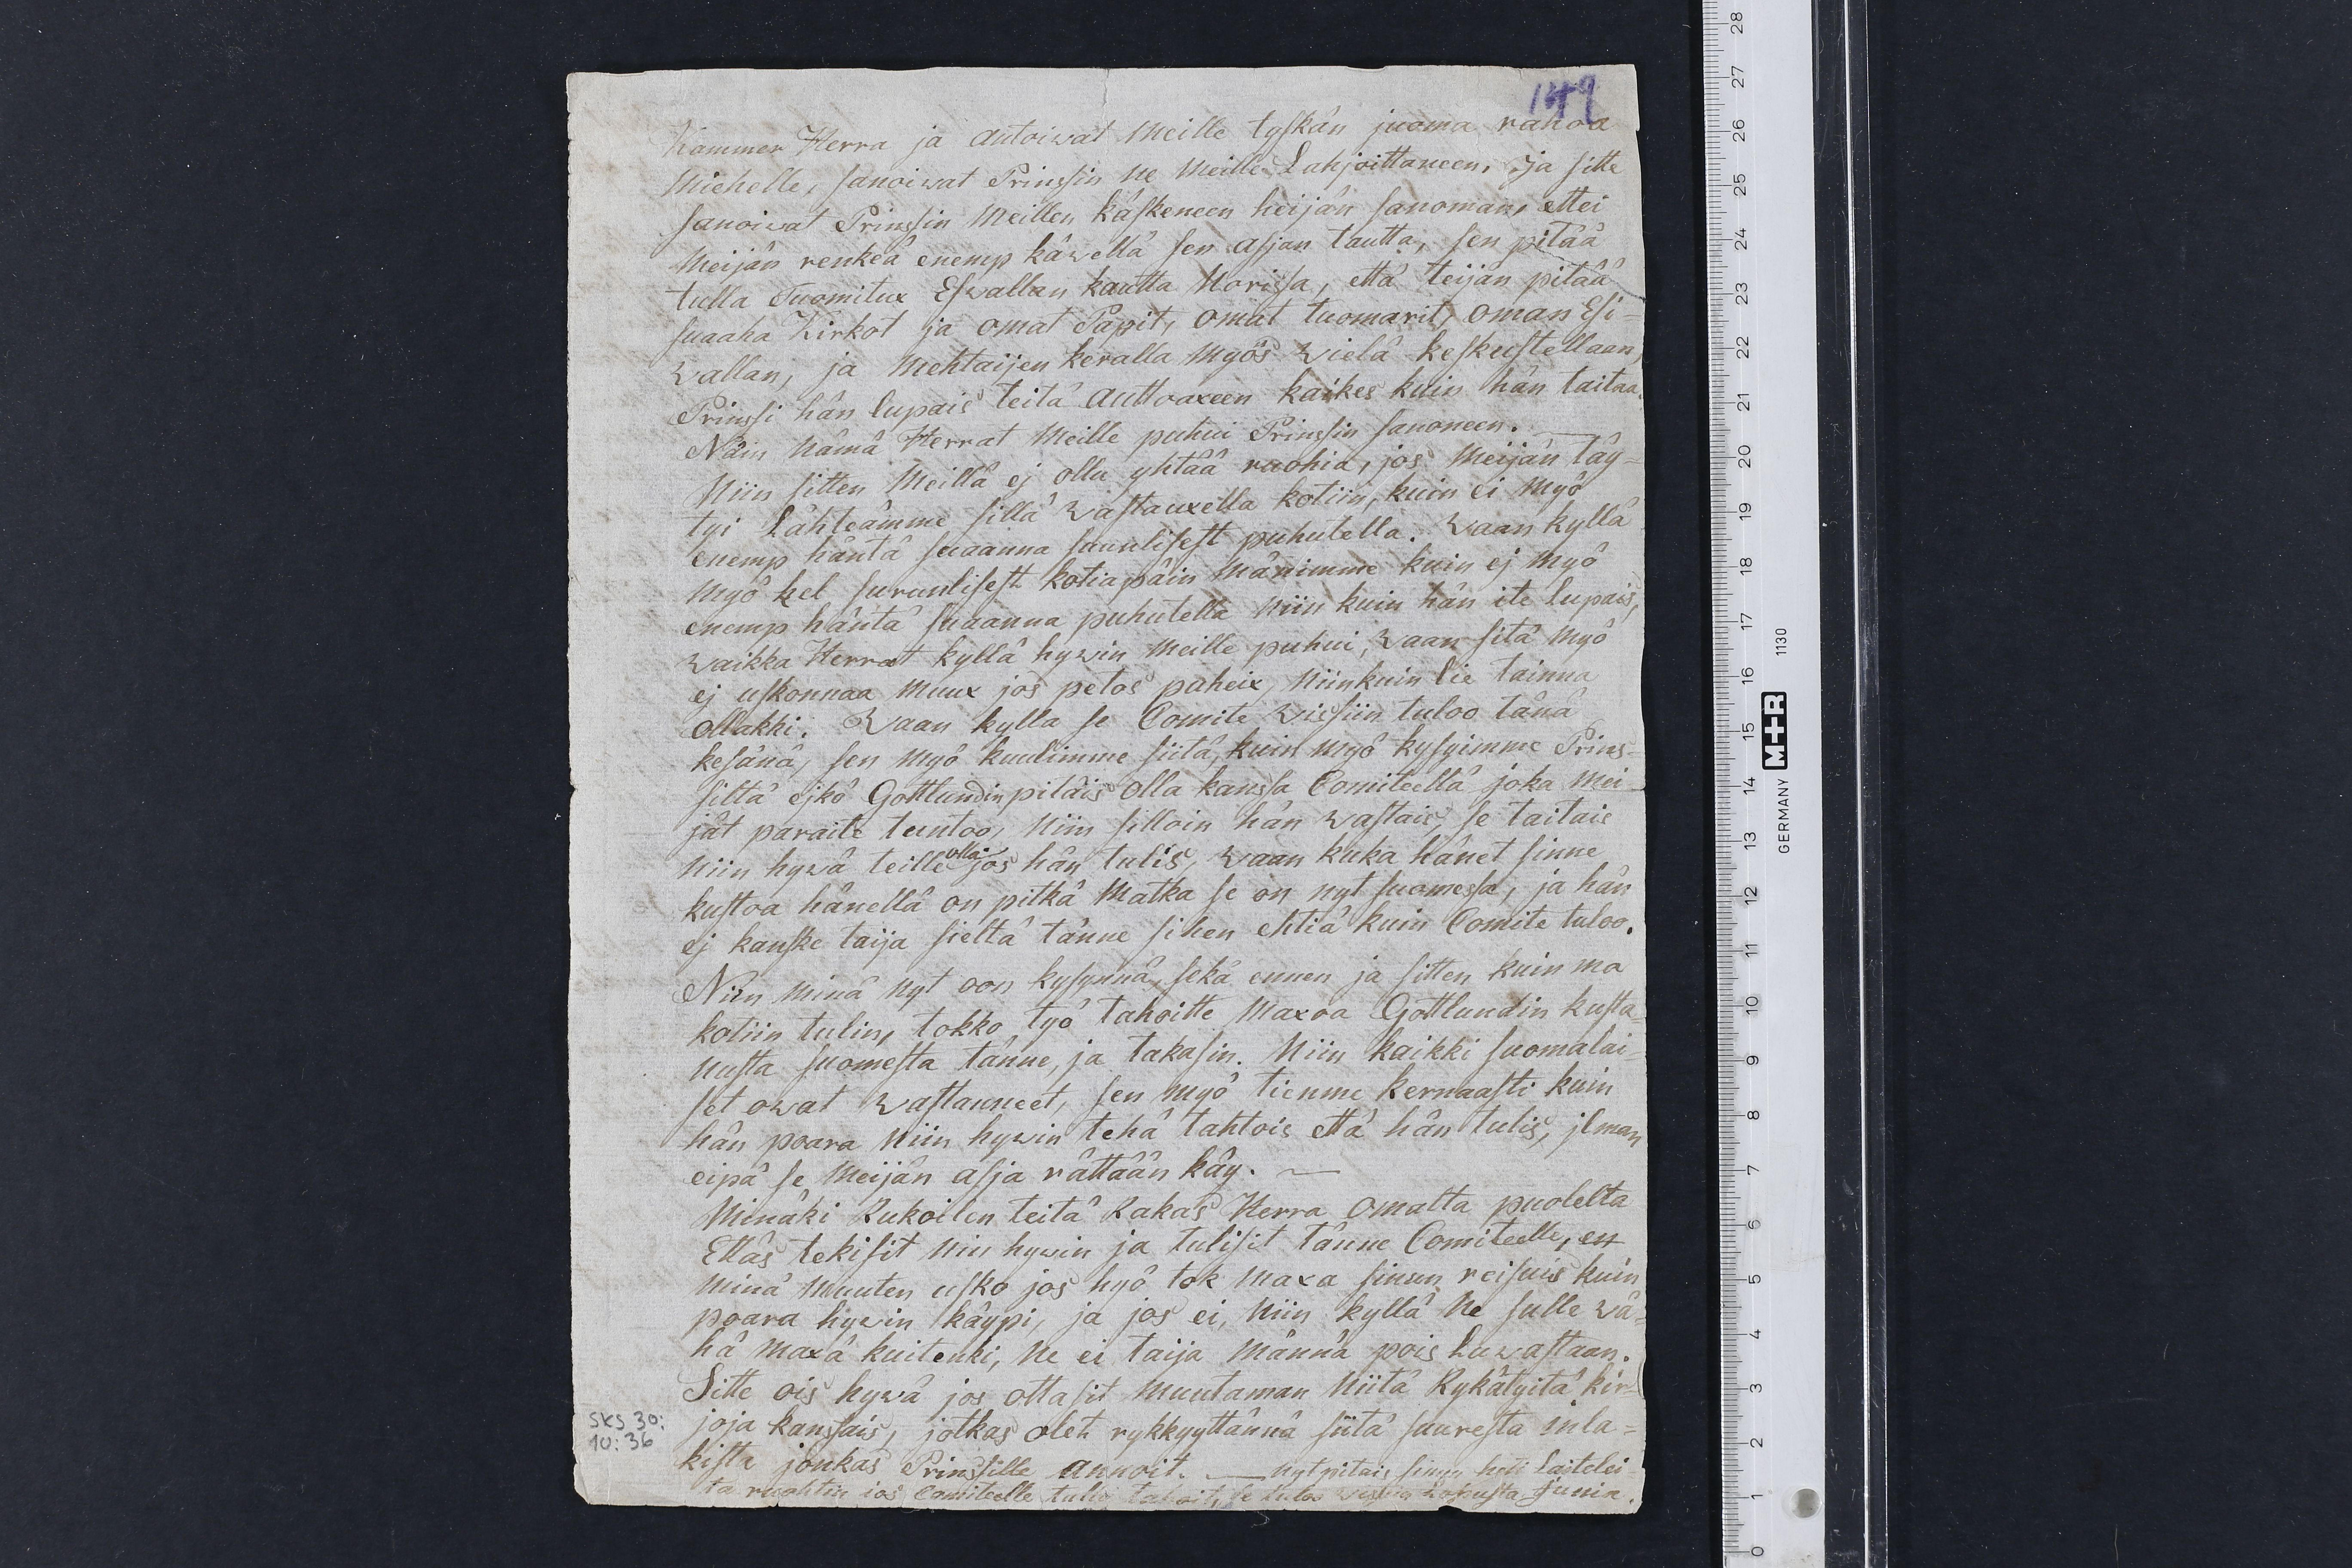 149
Kammer Herra ja antoivat Meille tyskän juoma rahoa
Miehelle, sanoivat Prinssin ne Meille Lahjoittaneen. Ja sitte
sanoivat Prinssin Meillen käskeneen heijän sanoman, ettei
Meijän renkeä enemp kävellä sen asjan tautta, sen pitää
tulla Tuomitux Esvallan kautta Norissa, että teijän pitää
suaaha Kirkot ja omat Papit, omat tuomarit, oman Esi-
vallan, ja Mehtaijen keralla Myös vielä keskustellaan,
Prinssi hän lupais teitä auttoaxeen kaikes kuin hän taitaa.
Näin Nämä Herrat Meille puhui Prinssin sanoneen. —
Niin sitten Meillä ej ollu yhtää ruohia, jos Meijän täy-
tyi Lähteämme sillä vastauxella kotiin, kuin ei Myö
enemp häntä suaanna suulisest puhutella. Vaan kyllä
Myö kel suruulisest kotiapäin Mänimme kuin ej Myö
enemp häntä suaanna puhutella Niin kuin hän ite lupais,
vaikka Herrat kyllä hyvin Meille puhui, vaan sitä Myö
ej uskonnaa Muux jos petos paheix, Niinkuin lie tainna
ollakki. Vaan kylla se Comite vissiin tuloo tänä
kesänä, sen Myö kuulimme siitä, kuin Myö kysyimme Prins-
siltä ejkö Gottlundin pitäis olla kanssa Comiteellä joka Mei-
jät paraite tuntoo, Niin silloin hän vastais, se taitais
Niin hyvä teille olla jos hän tulis, vaan kuka hänet sinne
kustoa hänellä on pitkä Matka se on nyt suomessa, ja hän
ej kanske taija sieltä tänne sihen ehtiä kuin Comite tuloo.
Niin Minä Nyt oon kysynnä, sekä ennen ja sitten kuin ma
kotiin tulin, tokko työ tahoitte Maxoa Gottlundin kusta-
nusta suomesta tänne, ja takasin. Niin kaikki suomalai-
set ovat vastanneet, sen Myö tienme kernaasti kuin
hän poara Niin hyvin tehä tahtois että hän tulis, jlman
eipä se Meijän asja rättään käy. —
Minäki Rukoilen teitä Rakas Herra omalta puolelta
Ettäs tekisit Nin hyvin ja tulisit tänne Comiteelle, en
Minä Muuten usko jos hyö tok Maxa sinun reisuis kuin
poara hyvin käypi, ja jos ei, Niin kyllä Ne sulle vä-
hä Maxa kuitenki, Ne ei taija Männä pois Luvastaan.
Sitte ois hyvä jos ottasit Muutaman Niitä Rykätyitä kir-
joja kanssais, jotkas olet rykkyyttännä siitä suuresta inla-
kista jonkas Prinssille annoit. — nyt pitäis sinun heti Laitelei-
ta ruohtiu jos Comiteelle tulla tahoit, se tuloo Junia.
SKS 30:
10:36
28 27 26 25 24 23 22 21 20 19 18 17 16 15 14 13 12 11 10 9 8 7 6 5 4 3 2 1 0
GERMANY M+R 1130